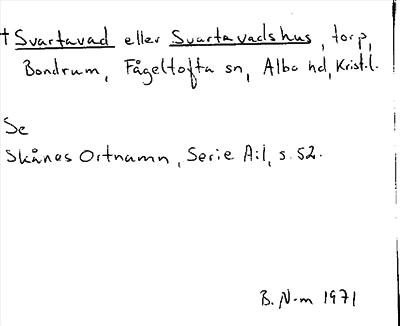 † Svartavad eller Svartavadshus, torp,
Bondrum, Fågeltofta sn, Albo hd, Krist.l.
Se
Skånes Ortnamn, Serie A:1, s. 52.
B. N-m 1971